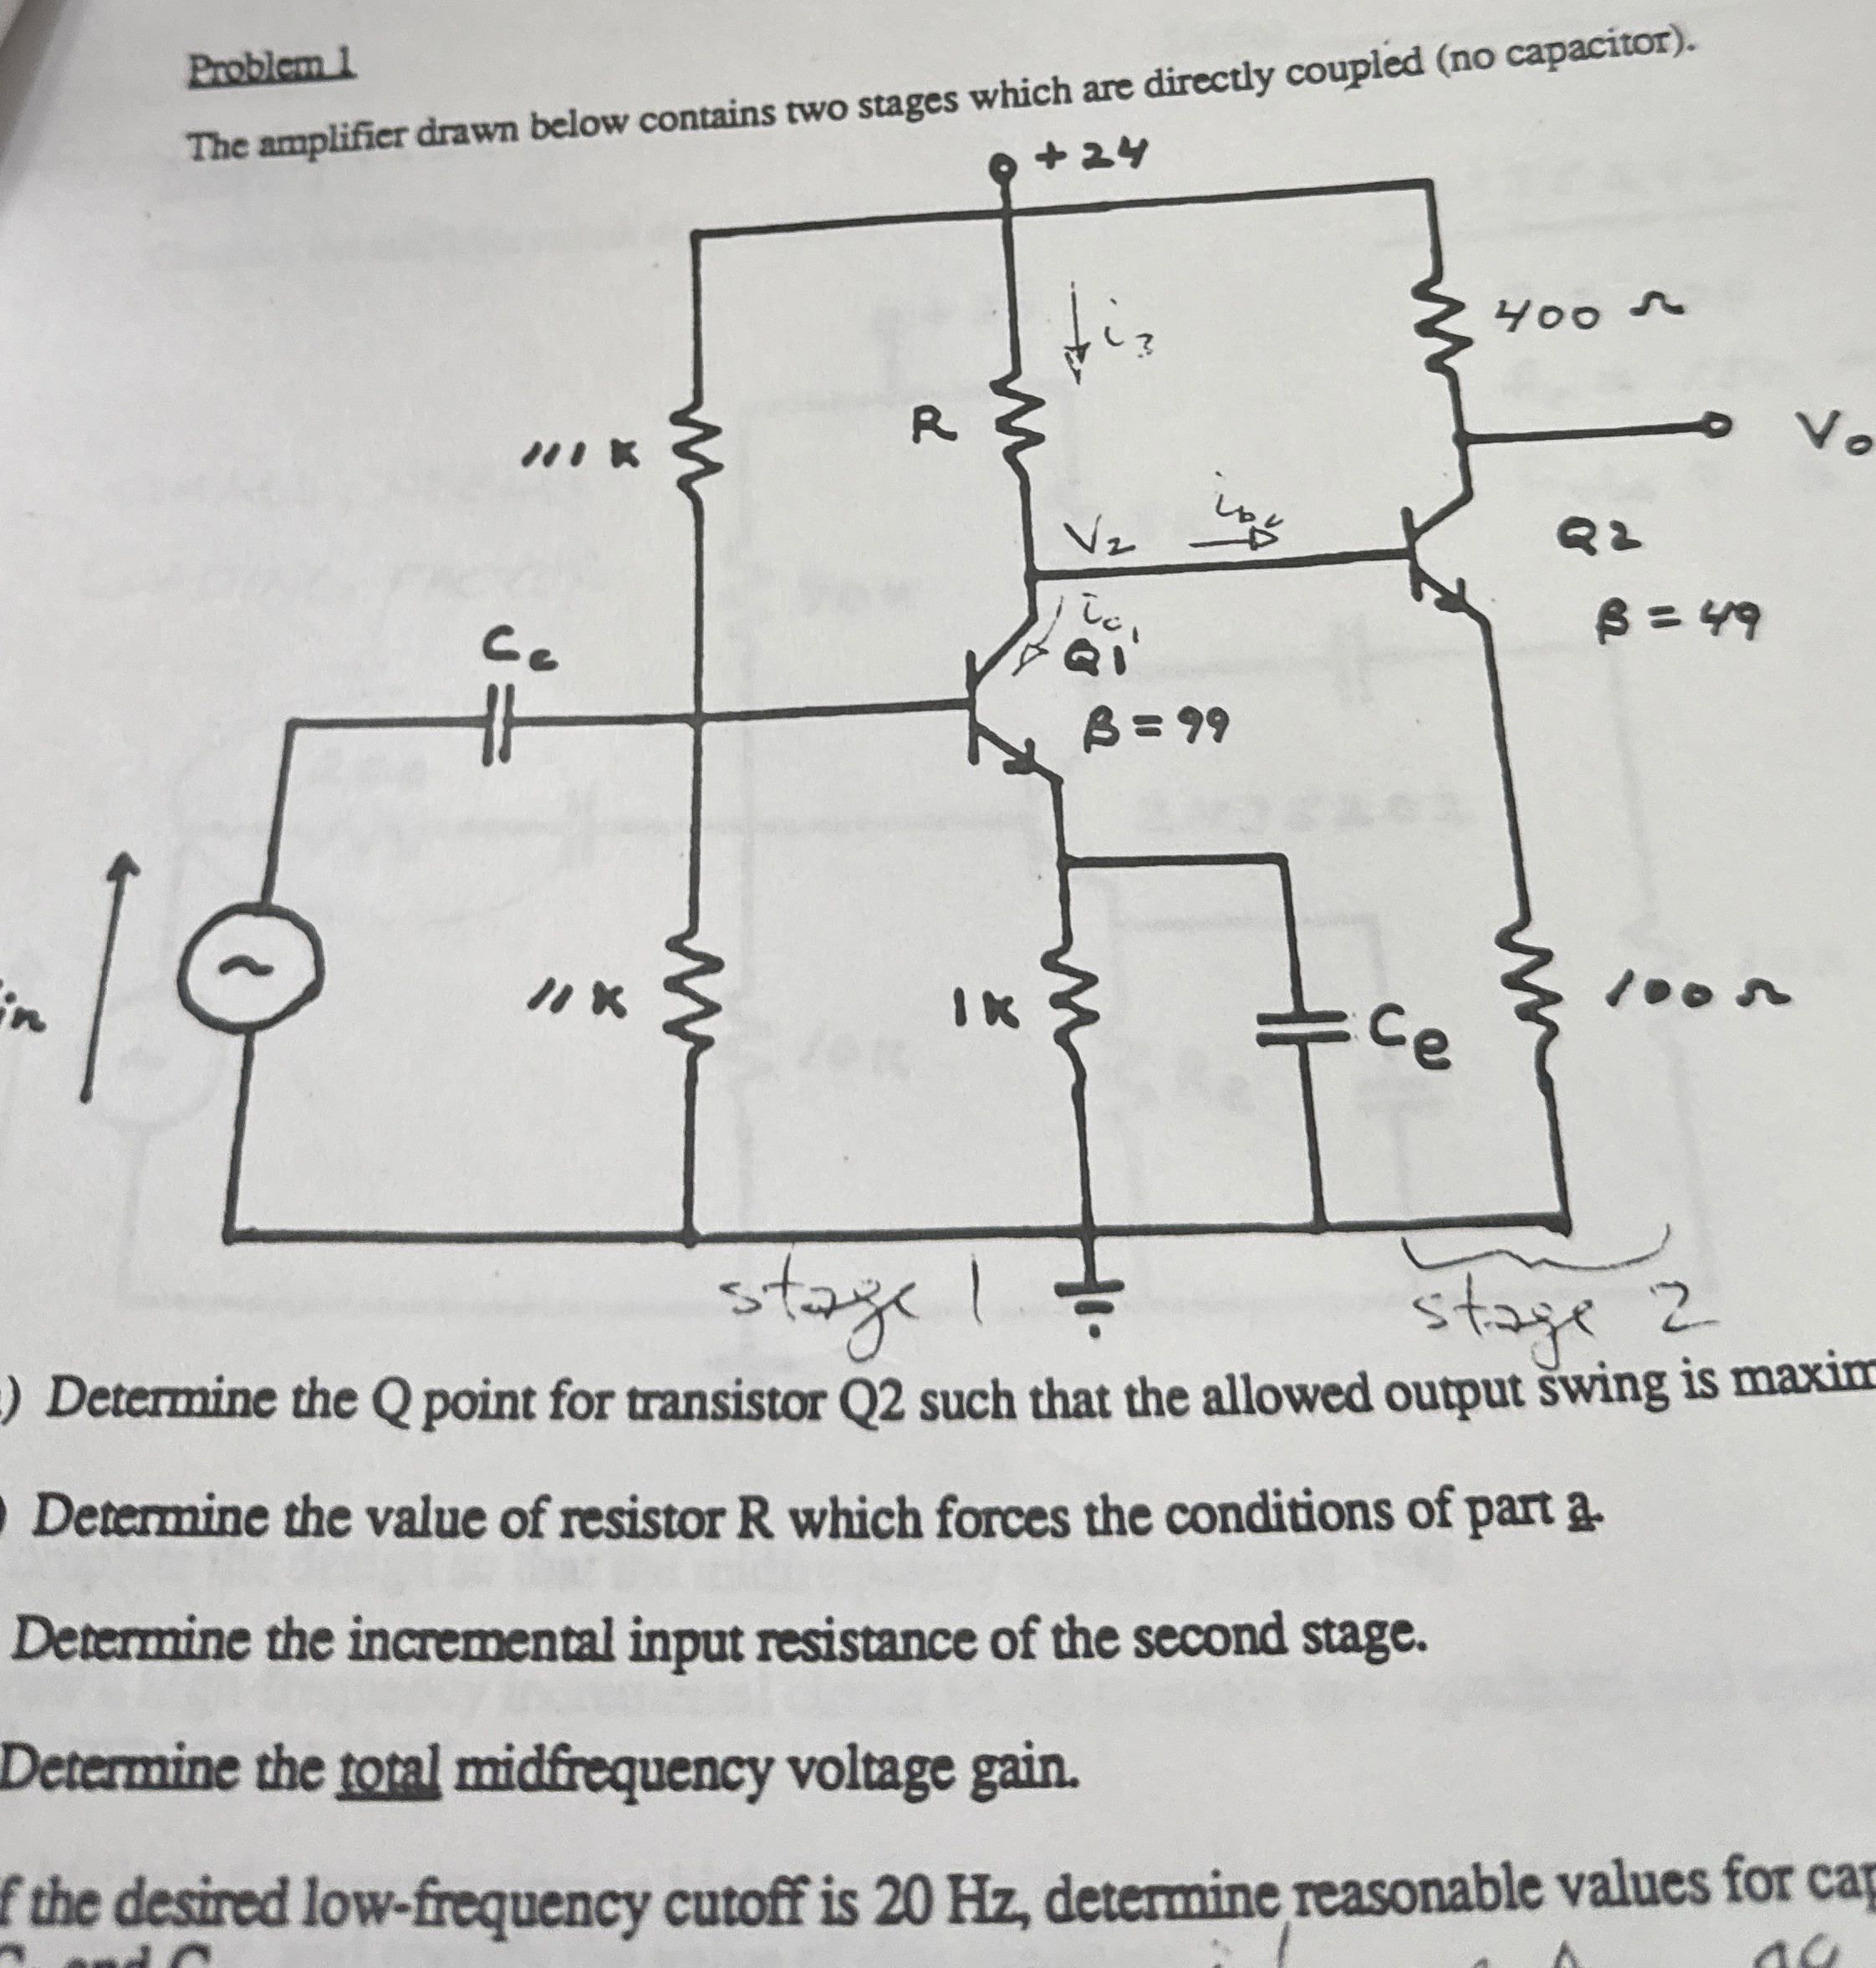 Problem 1
The amplifier drawn below contains two stages which are directly coupled (no capacitor).
+ 24
i3
400 Ω
R
111 K
Vo
V2
Q2
β = 49
Cc
ic1
Q1
β = 99
in
11 K
1K
Ce
100 Ω
stage 1
stage 2
) Determine the Q point for transistor Q2 such that the allowed output swing is maxim
) Determine the value of resistor R which forces the conditions of part a.
Determine the incremental input resistance of the second stage.
Determine the total midfrequency voltage gain.
f the desired low-frequency cutoff is 20 Hz, determine reasonable values for cap
and C